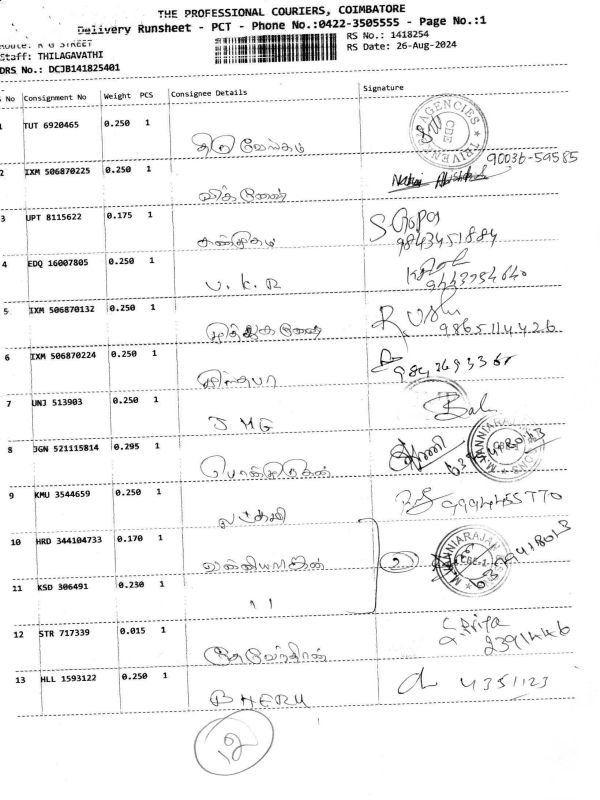 THE PROFESSIONAL COURIERS, COIMBATORE
Delivery Runsheet - PCT - Phone No.:0422-3505555 - Page No.:1
Route: R G STREET
RS No.: 1418254
Staff: THILAGAVATHI
RS Date: 26-Aug-2024
DRS No.: DCJB141825401
S No Consignment No Weight PCS Consignee Details Signature
1 TUT 6920465 0.250 1
AGENCIES CBE TRIVENI
2 IXM 506870225 0.250 1 90036-59585
3 UPT 8115622 0.175 1 S. Gopal
சண்முகம் 9843451884
4 EDQ 16007805 0.250 1
V. K. R
5 IXM 506870132 0.250 1 R. Ushi
9865114426
6 IXM 506870224 0.250 1
7 UNJ 513903 0.250 1 Bal
J M G
8 JGN 521115814 0.295 1 மணி
9 KMU 3544659 0.250 1 9994455770
லட்சுமி
10 HRD 344104733 0.170 1
வன்னியராஜன் 2 M.VANNIARAJAN
11 KSD 306491 0.230 1
11
12 STR 717339 0.015 1 S. Priya
தேவேந்திரன் 2391446
13 HLL 1593122 0.250 1 4351123
BHERU
12